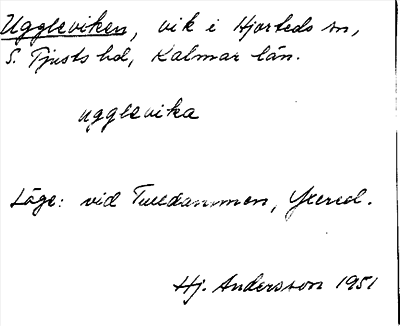 Uggleviken, vik i Hjorteds sn,
S. Tjusts hd, Kalmar län.
ugglevika
Läge: vid Tvedammen, Yxered.
Hj. Andersson 1951